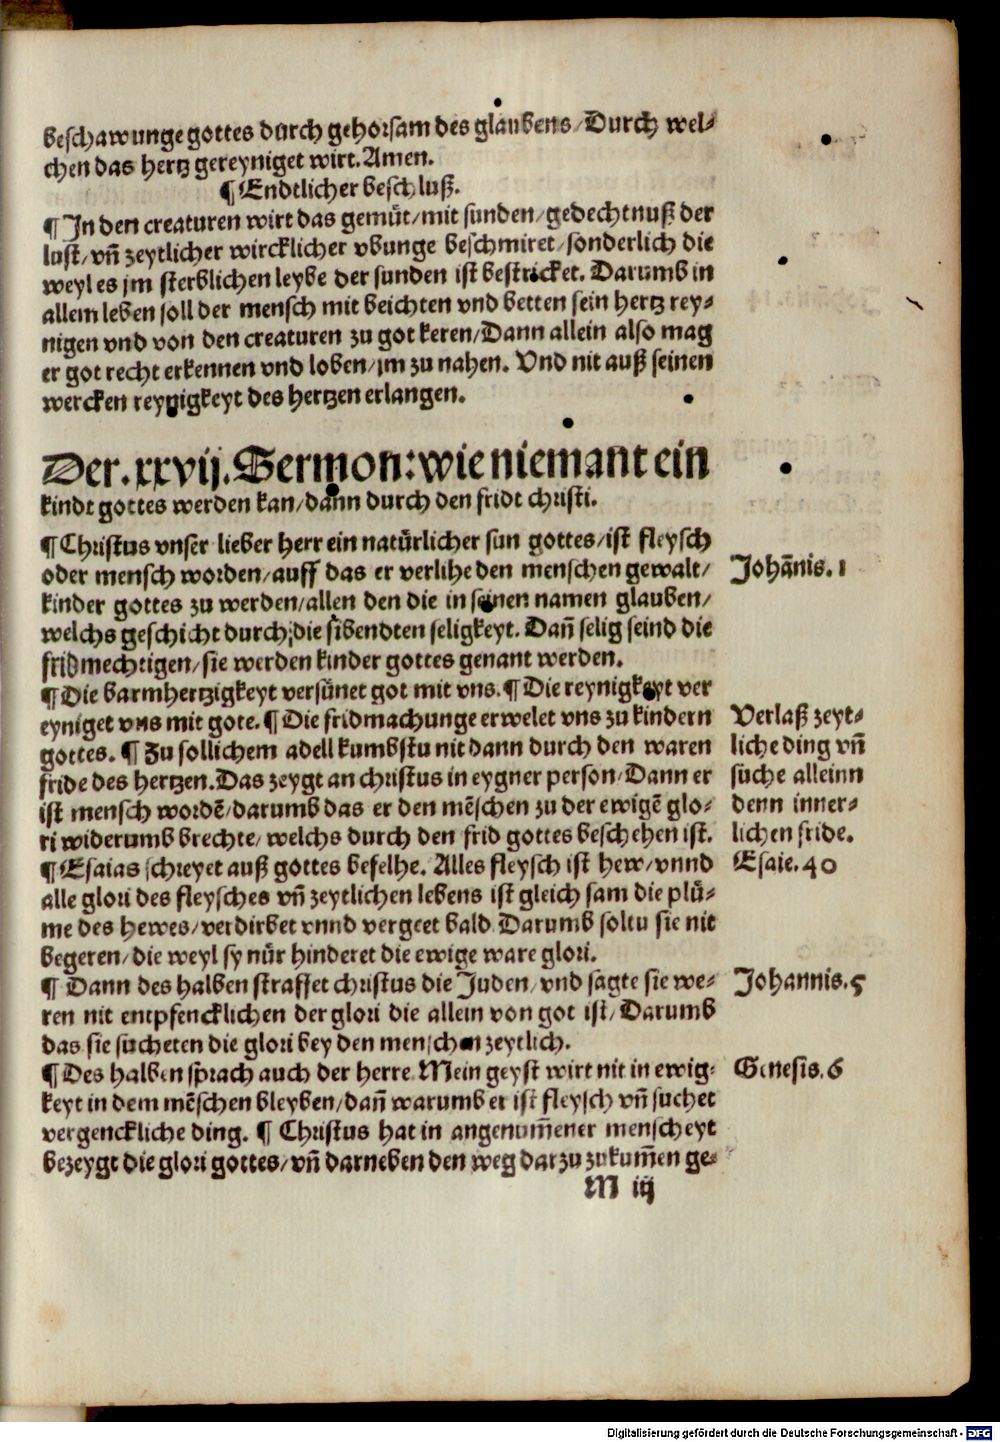 beschawunge gottes durch gehorsam des glaubens/Durch wel-
chen das hertz gereyniget wirt. Amen.
¶ Endtlicher beschluß.
¶ In den creaturen wirt das gemüt/mit sunden/gedechtnuß der
lust/vñ zeytlicher wircklicher vbunge beschmiret/sonderlich die
weyl es jm sterblichen leybe der sunden ist bestricket. Darumb in
allem leben soll der mensch mit beichten vnd betten sein hertz rey-
nigen vnd von den creaturen zu got keren/Dann allein also mag
er got recht erkennen vnd loben/jm zu nahen. Vnd nit auß seinen
wercken reynigkeyt des hertzen erlangen.
Der.xxvij.Sermon:wie niemant ein
kindt gottes werden kan/dann durch den fridt christi.
¶ Christus vnser lieber herr ein natürlicher sun gottes/ist fleysch
oder mensch worden/auff das er verlihe den menschen gewalt/
kinder gottes zu werden/allen den die in seinen namen glauben/
welchs geschicht durch die sibendten seligkeyt. Dañ selig seind die
fridmechtigen/sie werden kinder gottes genant werden.
¶ Die barmhertzigkeyt versünet got mit vns. ¶ Die reynigkeyt ver
eyniget vns mit gote. ¶ Die fridmachunge erwelet vns zu kindern
gottes. ¶ Zu sollichem adell kumbstu nit dann durch den waren
fride des hertzen. Das zeygt an christus in eygner person/Dann er
ist mensch wordē/darumb das er den mēschen zu der ewigē glo-
ri widerumb brechte/welchs durch den frid gottes beschehen ist.
¶ Esaias schreyet auß gottes befelhe. Alles fleysch ist hew/vnnd
alle glori des fleysches vñ zeytlichen lebens ist gleich sam die plů-
me des hewes/verdirbet vnnd vergeet bald Darumb soltu sie nit
begeren/die weyl sy nür hinderet die ewige ware glori.
¶ Dann des halben straffet christus die Juden/vnd sagte sie we-
ren nit entpfencklichen der glori die allein von got ist/Darumb
das sie sucheten die glori bey den menschen zeytlich.
¶ Des halben sprach auch der herre Mein geyst wirt nit in ewig-
keyt in dem mēschen bleyben/dañ warumb er ist fleysch vñ suchet
vergenckliche ding. ¶ Christus hat in angenum̃ener menscheyt
bezeygt die glori gottes/vñ darneben den weg darzu zukum̃en ge-
M iij
Johānis. 1
Verlaß zeyt-
liche ding vñ
suche alleinn
denn inner-
lichen fride.
Esaie. 40
Johannis. 5
Genesis. 6
Digitalisierung gefördert durch die Deutsche Forschungsgemeinschaft - DFG